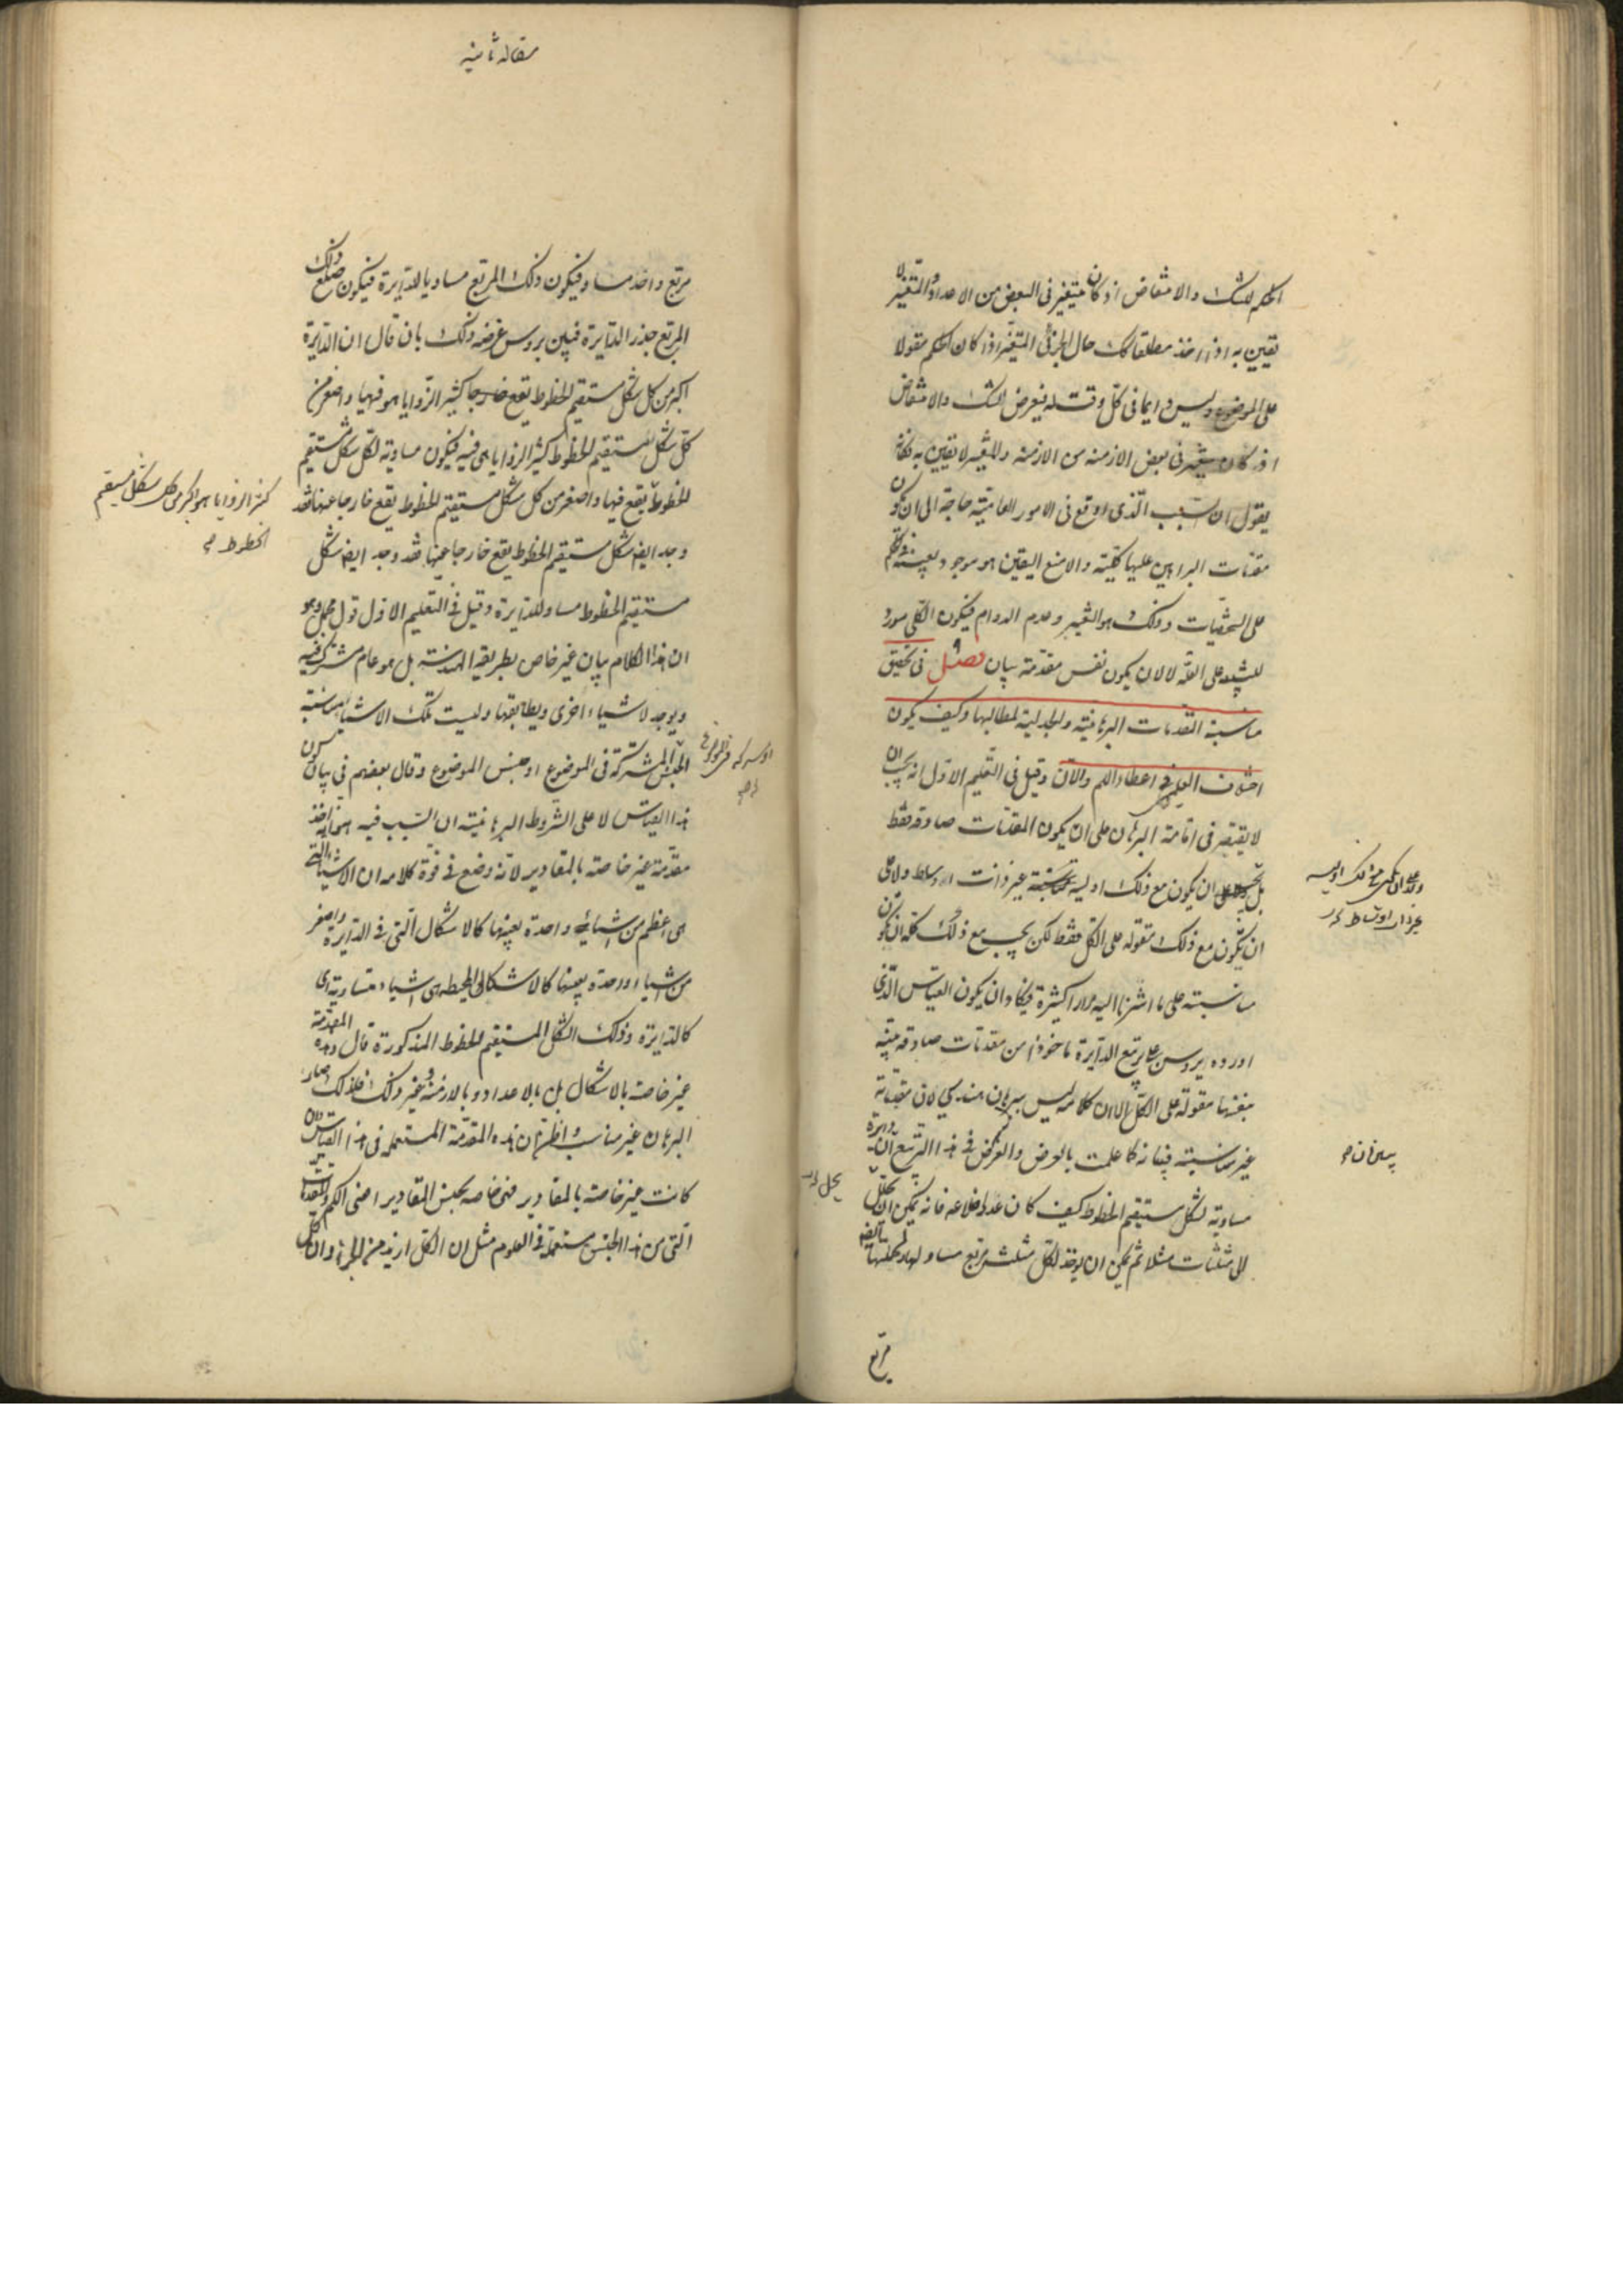 الحكم للشك والانتقاض اذ كان متغير فى البعض من الاعداد والمتغير لا
يقين به اذا اخذ مطلقا كك حال الجزئى المتغير اذا كان الحكم مقولا
على الموضوع وليس دايما فى كل وقت له فيعرض الشك والانتقاض
اذ كان متغير فى بعض الازمنه من الازمنه والمتغير لا يقين به فكانه
يقول ان السبب الذى اوقع فى الامور العامية حاجة الى ان يكون
مقدمات البراهين عليها كلية والا منع اليقين هو موجود بعينه فى الحكم
على الشخصيات وذلك هو التغير وعدم الدوام فيكون الكلى مورد
للتنبيه على العلة لا لان يكون نفس مقدمة بيان فصل فى تحقيق
مناسبة المقدمات البرهانية والجدلية لمطالبها وكيف يكون
اختلاف العلم فى اعطاء اللم والان وقيل فى التعليم الاول انه يجب ان
لا يقتصر فى اقامة البرهان على ان يكون المقدمات صادقه فقط
بل يجب ان يكون مع ذلك اولية غير ذات اوساط ولا على
ان يكون مع ذلك مقوله على الكل فقط لكن يجب مع ذلك كله ان يكون
مناسبته على ما اشرنا اليه مرارا كثيرة فيكاد ان يكون القياس الذى
اورده بروسن على تربيع الدايرة ماخوذا من مقدمات صادقه بينه
بنفسها مقولة على الكل الا ان كلامه ليس ببرهان هندسى لان مقدماته
غير مناسبته فبيانه كما علمت بالعرض والغرض فى هذا التربيع ان دايرة
مساوية لشكل مستقيم الخطوط كيف كان عدد اضلاعه فانه يمكن ان يحلل
الى مثلثات مثلا ثم يمكن ان يوخذ لكل مثلث مربع مساو لها ولجملتها
مربع
غير ذات اوساط
يحلل
مقاله ثانيه
مربع واحد مساو فيكون ذلك المربع مساويا للدايرة فيكون ضلع ذلك
المربع جذر الدايرة فبين بروسن غرضه ذلك بان قال ان الدايرة
اكبر من كل شكل مستقيم الخطوط يقع خارجا كثير الزوايا هو فيها واصغر من
كل شكل مستقيم الخطوط كثير الزوايا هى فيه فيكون مساوية لكل شكل مستقيم
الخطوط يقع فيها واصغر من كل شكل مستقيم الخطوط يقع خارجا عنها فقد
وجد ايضا شكل مستقيم الخطوط يقع خارجا عنها فقد وجد ايضا شكل
مستقيم الخطوط مساو للدايرة وقيل فى التعليم الاول قول مجمل وهو
ان هذا الكلام بيان غير خاص بطريقة الهندسة بل هو عام مشترك فيه
ويوجد لاشياء اخرى ويطابقها وليست تلك الاشياء بمناسبة
الجنس المشتركة فى الموضوع او جنس الموضوع وقال بعضهم فى بيان كون
هذا القياس لا على الشروط البرهانية ان السبب فيه هو انه اخذ
مقدمة غير خاصة بالمقادير لانه وضع فى قوة كلامه ان الاشياء التى
هى اعظم من اشياء واحدة بعينها كالاشكال التى فى الدايرة واصغر
من اشياء واحدة بعينها كالاشكال المحيطه هى اشياء متساوية اى
كالدايرة وذلك الشكل المستقيم الخطوط المذكورة قال وهذه المقدمة
غير خاصة بالاشكال بل بالاعداد وبالازمنة وغير ذلك فلذلك صار
البرهان غير مناسب واظن ان هذه المقدمة المستعمله فى هذا القياس وان
كانت غير خاصة بالمقادير فهى خاصه بجنس المقادير اعنى الكم والمقدمات
التى من هذا الجنس مستعملة فى العلوم مثل ان الكل ازيد من الجزء وان كل
كثير الزوايا هو اكبر من كل شكل مستقيم
الخطوط